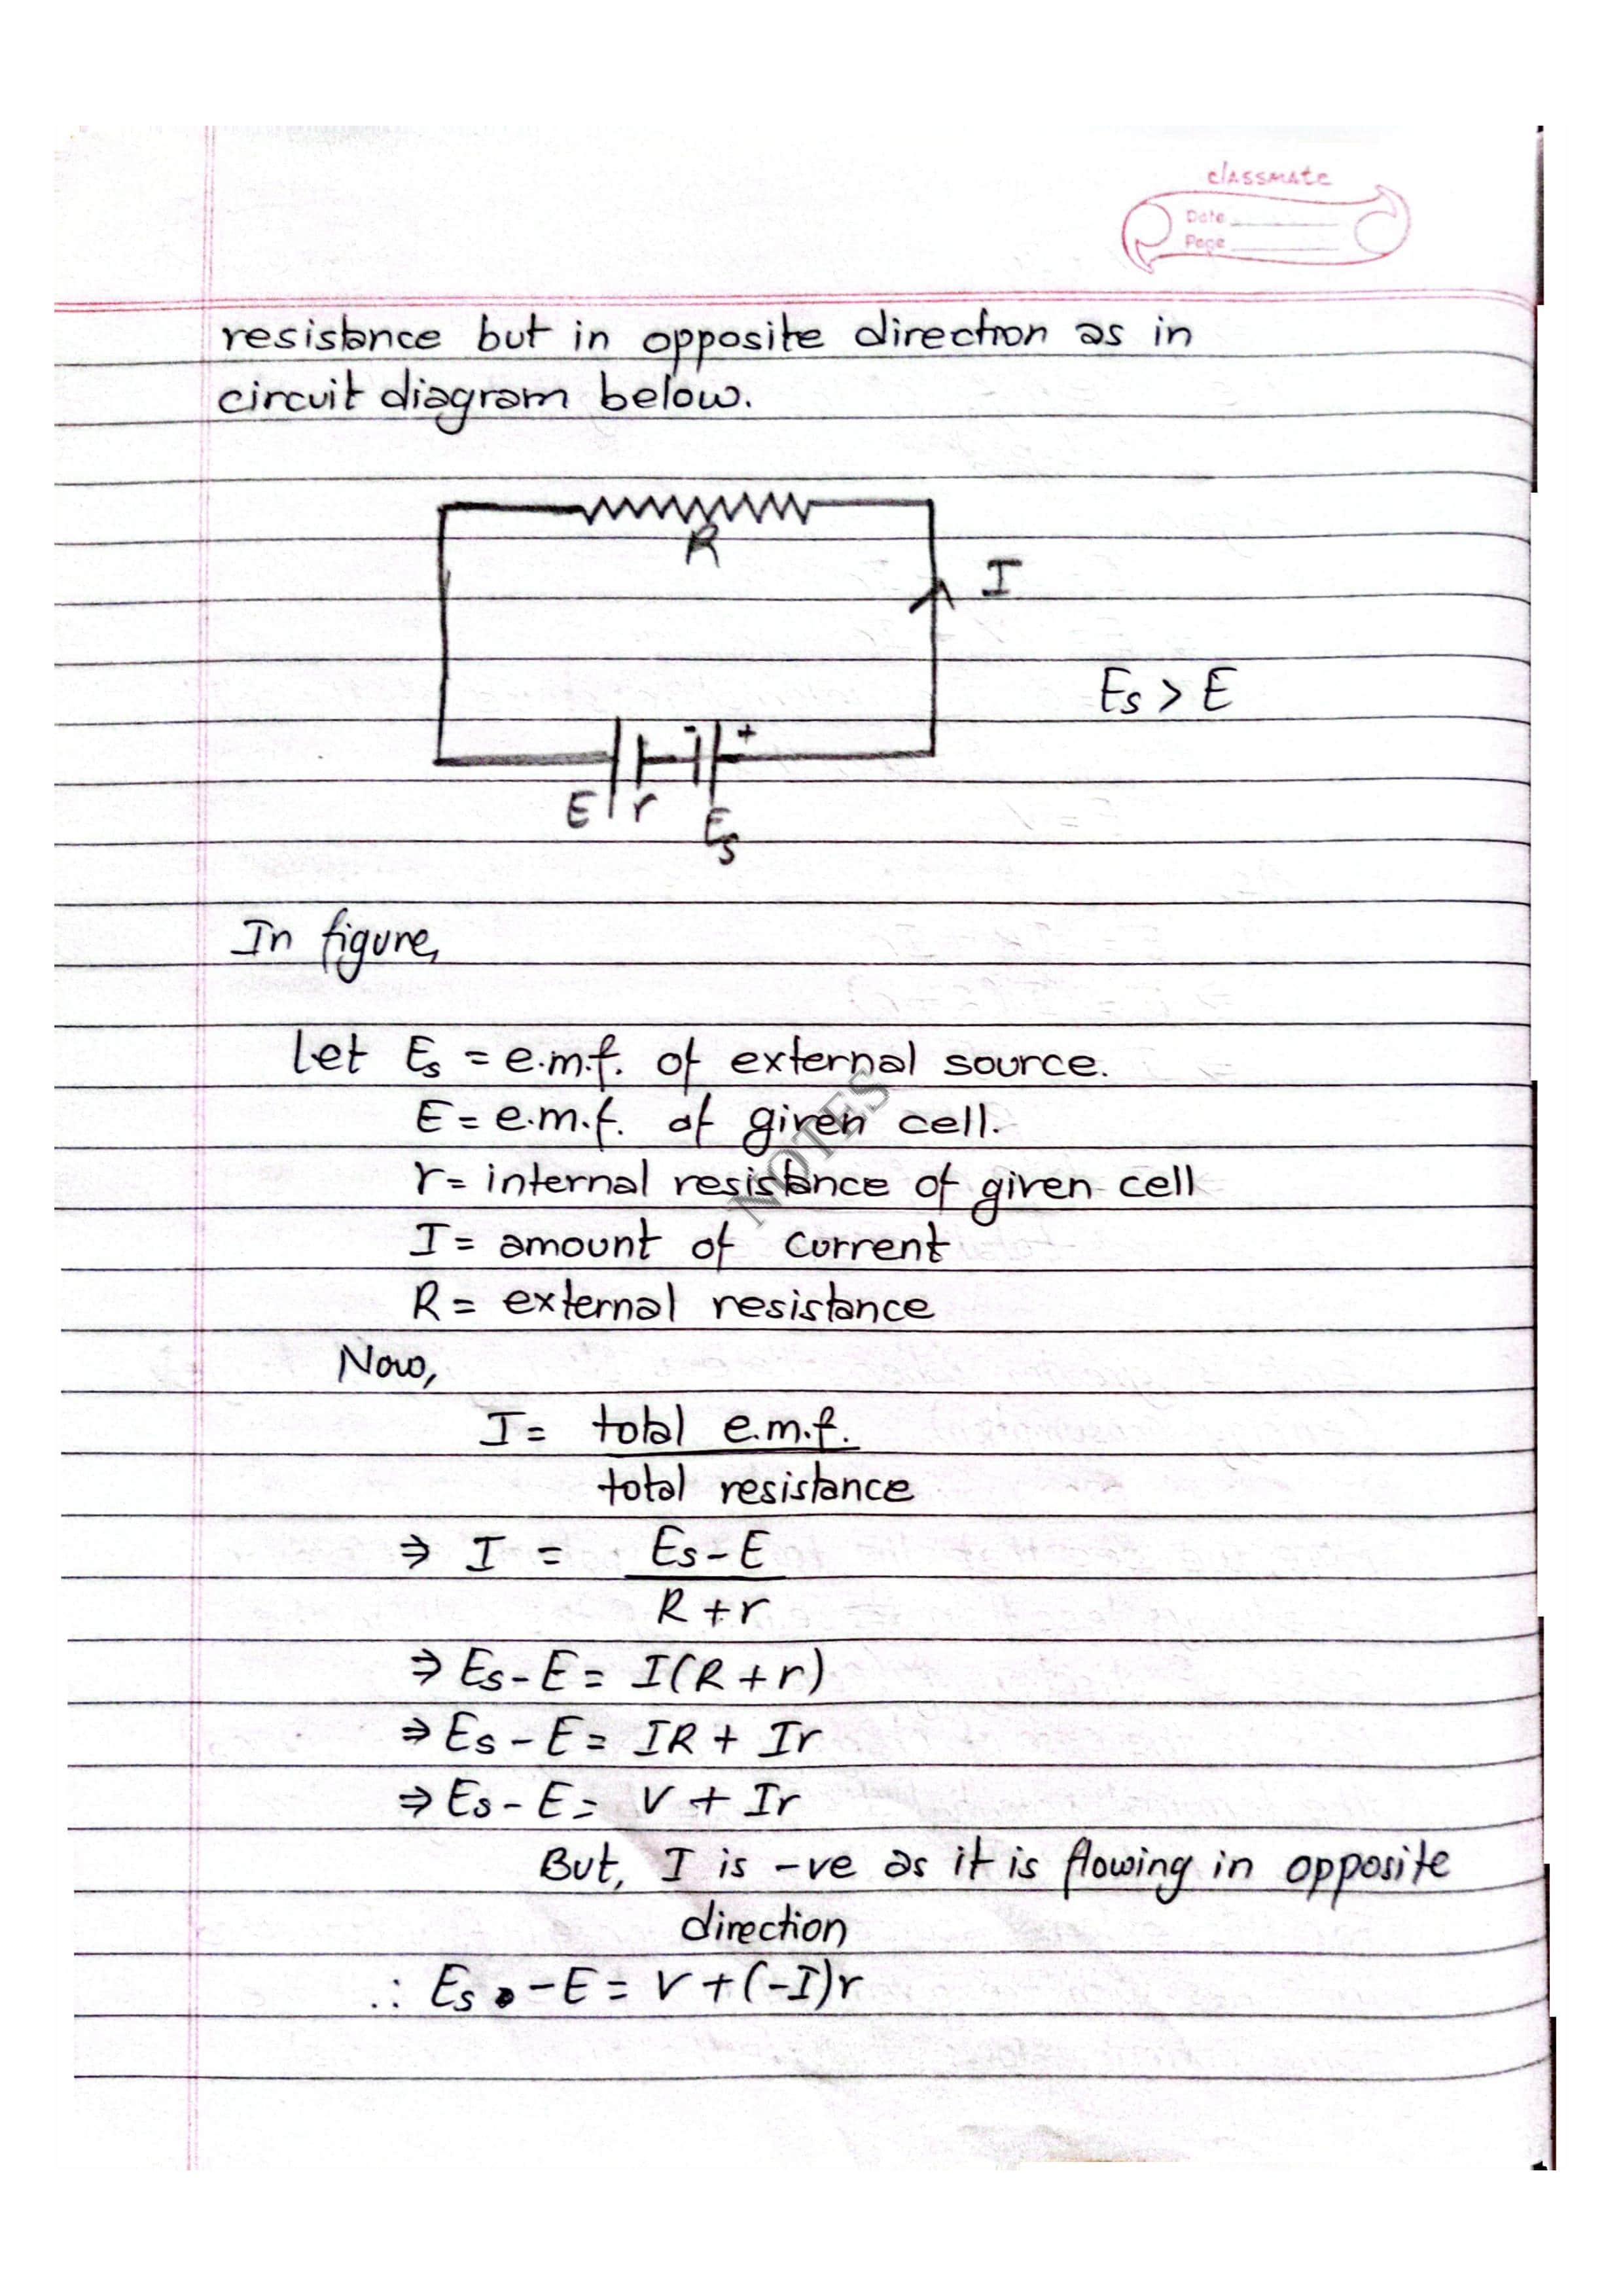 classmate
Date
Page
resistance but in opposite direction as in
circuit diagram below.
R
I
Es > E
- +
E r Es
In figure,
Let Es = e.m.f. of external source.
E = e.m.f. of given cell.
r = internal resistance of given cell
I = amount of current
R = external resistance
NOTES
Now,
I = total e.m.f.
total resistance
⇒ I = Es - E
R + r
⇒ Es - E = I(R + r)
⇒ Es - E = IR + Ir
⇒ Es - E = V + Ir
But, I is -ve as it is flowing in opposite
direction
∴ Es - E = V + (-I)r